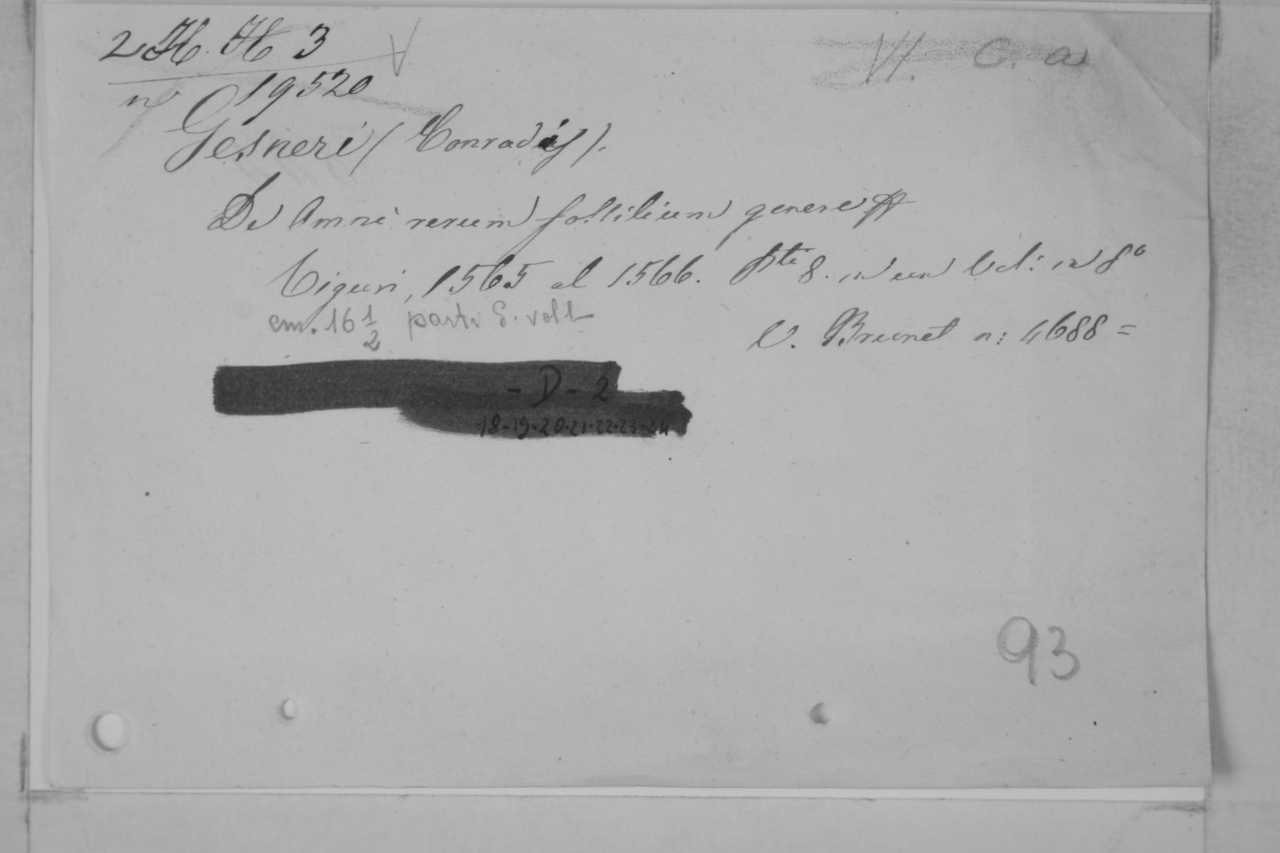 2 H. H 3 V
VI. C. a
n° 19520
Gesneri (Conradi).
De Omni rerum fossilium genere
Tiguri, 1565 al 1566. Pti 8. in un Vol: in 8°
cm. 16 1/2 parti 8. voll
V. Brunet n: 4688 =
- D - 2
18-19-20-21-22-23-24
93